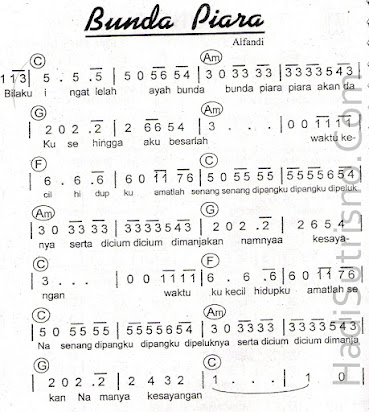 Bunda Piara
Alfandi
C Am
1 1 3 | 5 . 5 . 5 | 5 0 5 5 6 5 4 | 3 0 3 3 3 3 | 3 3 3 3 5 4 3 |
Bilaku i ngat lelah ayah bunda bunda piara piara akan da
G Am
2 0 2 . 2 | 2 6 6 5 4 | 3 . . . | 0 0 1 1 1 1 |
Ku se hingga aku besarlah waktu ke-
F C
6 . 6 . 6 | 6 0 1 1 7 6 | 5 0 5 5 5 5 | 5 5 5 5 6 5 4 |
cil hi dup ku amatlah senang senang dipangku dipangku dipeluk
Am G
3 0 3 3 3 3 | 3 3 3 3 5 4 3 | 2 0 2 . 2 | 2 6 5 4 |
nya serta dicium dicium dimanjakan namnyaa kesaya-
C F
3 . . . | 0 0 1 1 1 1 | 6 . 6 . 6 | 6 0 1 1 7 6 |
ngan waktu ku kecil hidupku amatlah se
C Am
5 0 5 5 5 5 | 5 5 5 5 6 5 4 | 3 0 3 3 3 3 | 3 3 3 3 5 4 3 |
Na senang dipangku dipangku dipeluknya serta dicium dicium dimanja
G C
2 0 2 . 2 | 2 4 3 2 | 1 . . . | 1 0
kan Na manya kesayangan
HadiSutisna.Com